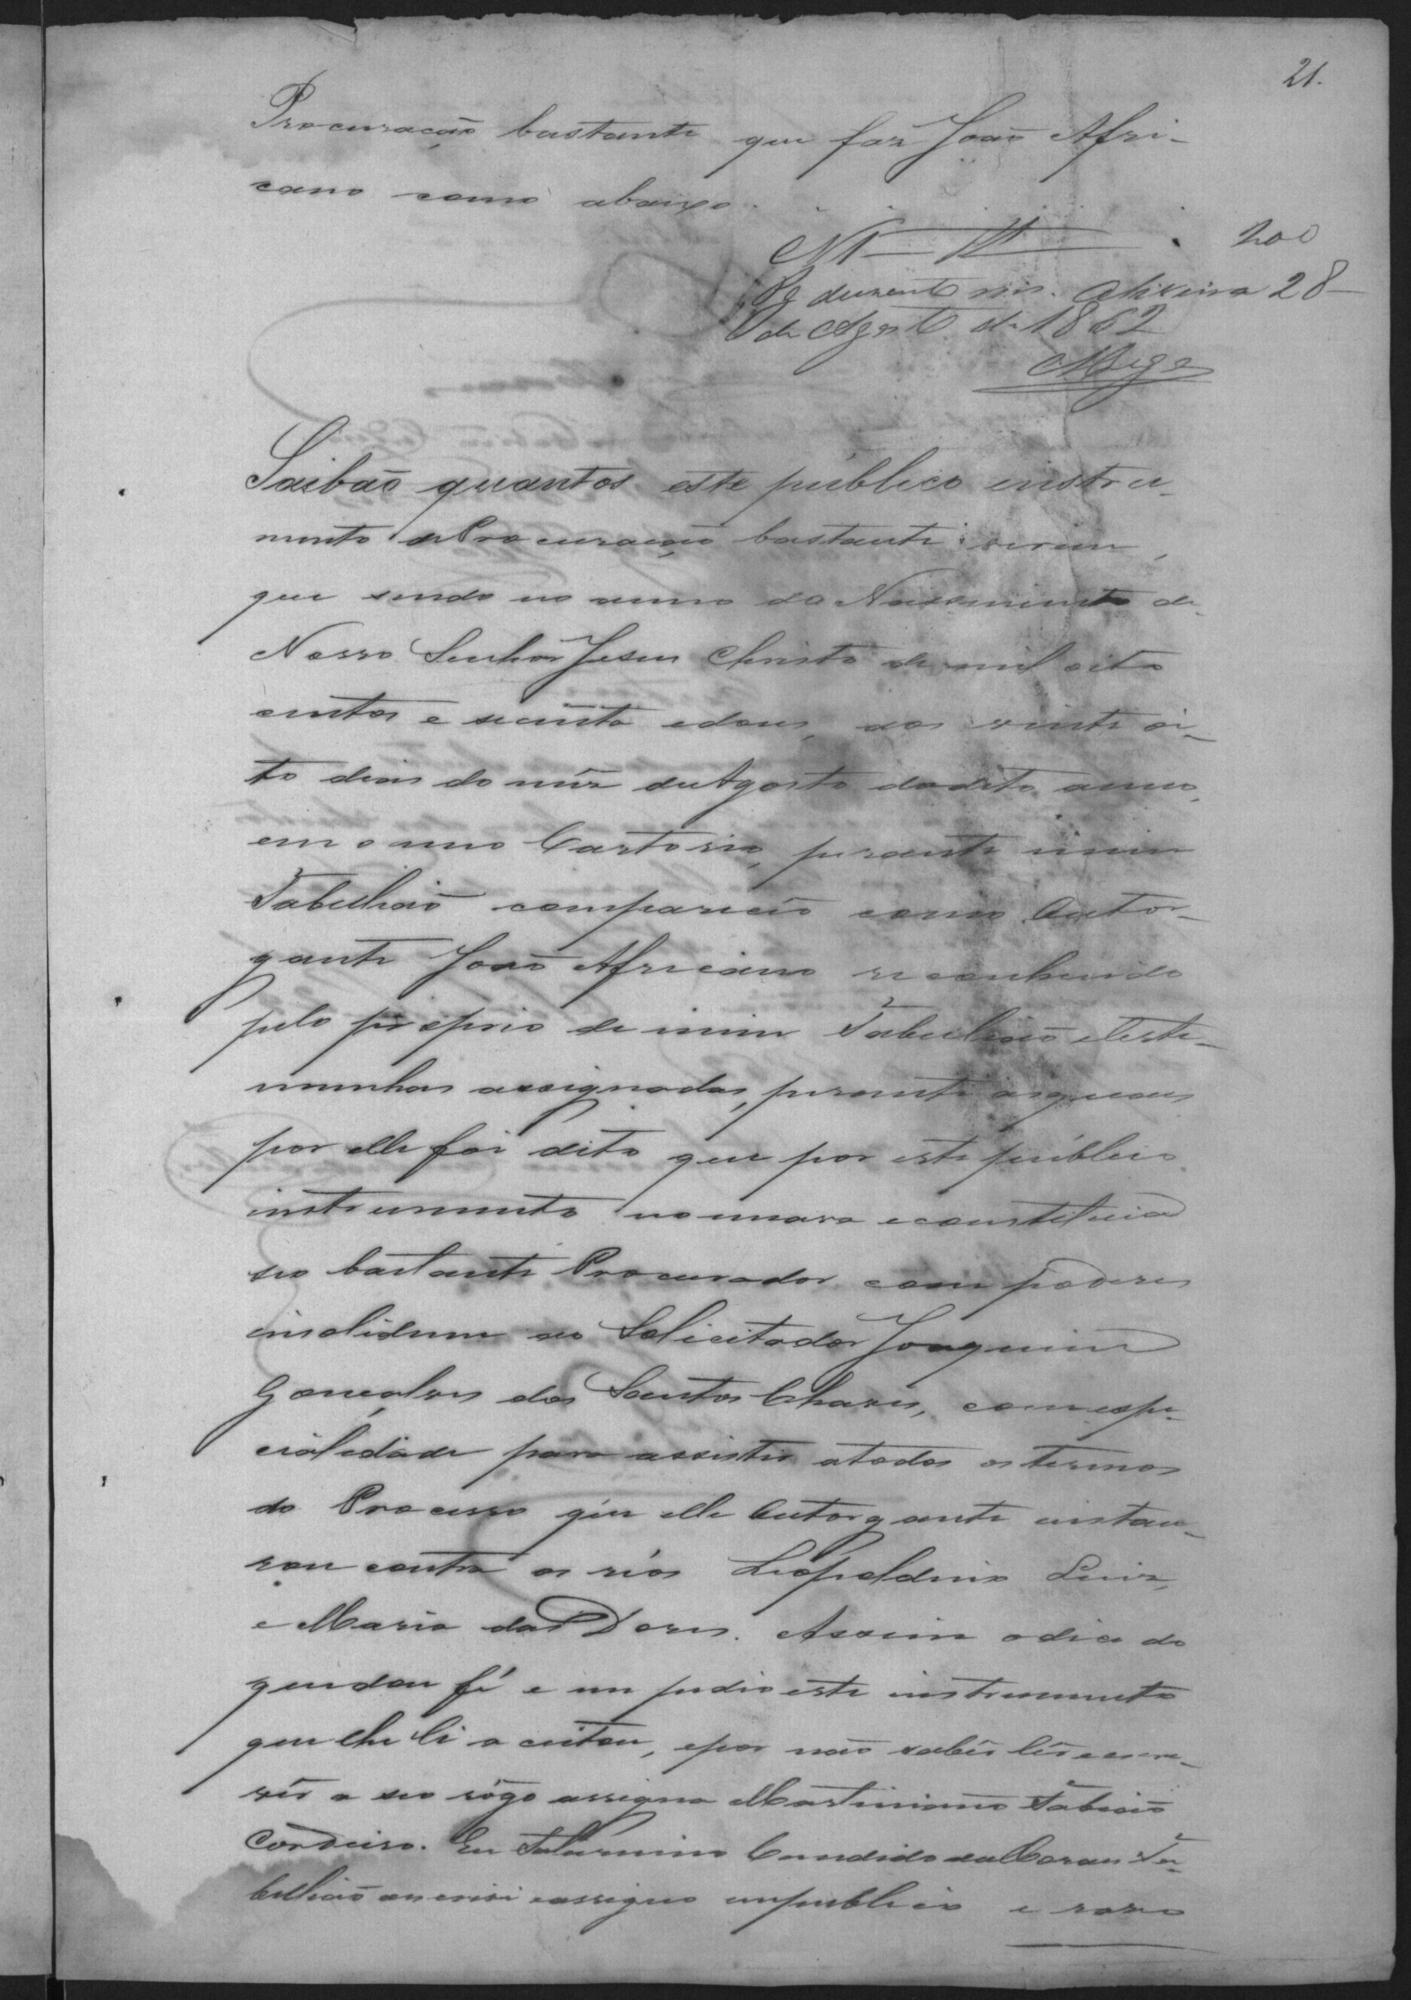 21.
Procuração bastante que faz João Afri-
cano como abaixo.
N1 200
Pg duzentos reis. Oliveira 28
de Agosto de 1862
Saibão quantos este público instru-
mento de Procuração bastante virem,
que sendo no anno do Nascimento de
Nosso Senhor Jesus Christo de mil oito
centos e secenta e dous, aos vinte oi-
to dias do mêz de Agosto do dito anno,
em o meo Cartorio, perante mim
Tabelliaõ compareceo como Outor-
gante João Africano reconhecido
pelo próprio de mim Tabelliaõ e teste-
munhas assignadas, perante as quaes
por elle foi dito que por este público
instrumento nomeava e constituia
seo bastante Procurador com poderes
insolidum ao Solicitador Joaquim
Gonçalves dos Santos Chaves, com espe-
cialidade para assistir a todos os termos
do Processo que elle Outorgante instau-
rou contra os réos Leopoldino Luiz,
e Maria das Dores. Assim o dice do
que dou fé e me pedio este instrumento
que lhe li aceitou, e por não sabêr lêr e escre-
vêr a seo rôgo assigna Martiniano
Cordeiro. Eu Candido de Moraes Ta-
belliaõ escrevi e assigno em publico e raso